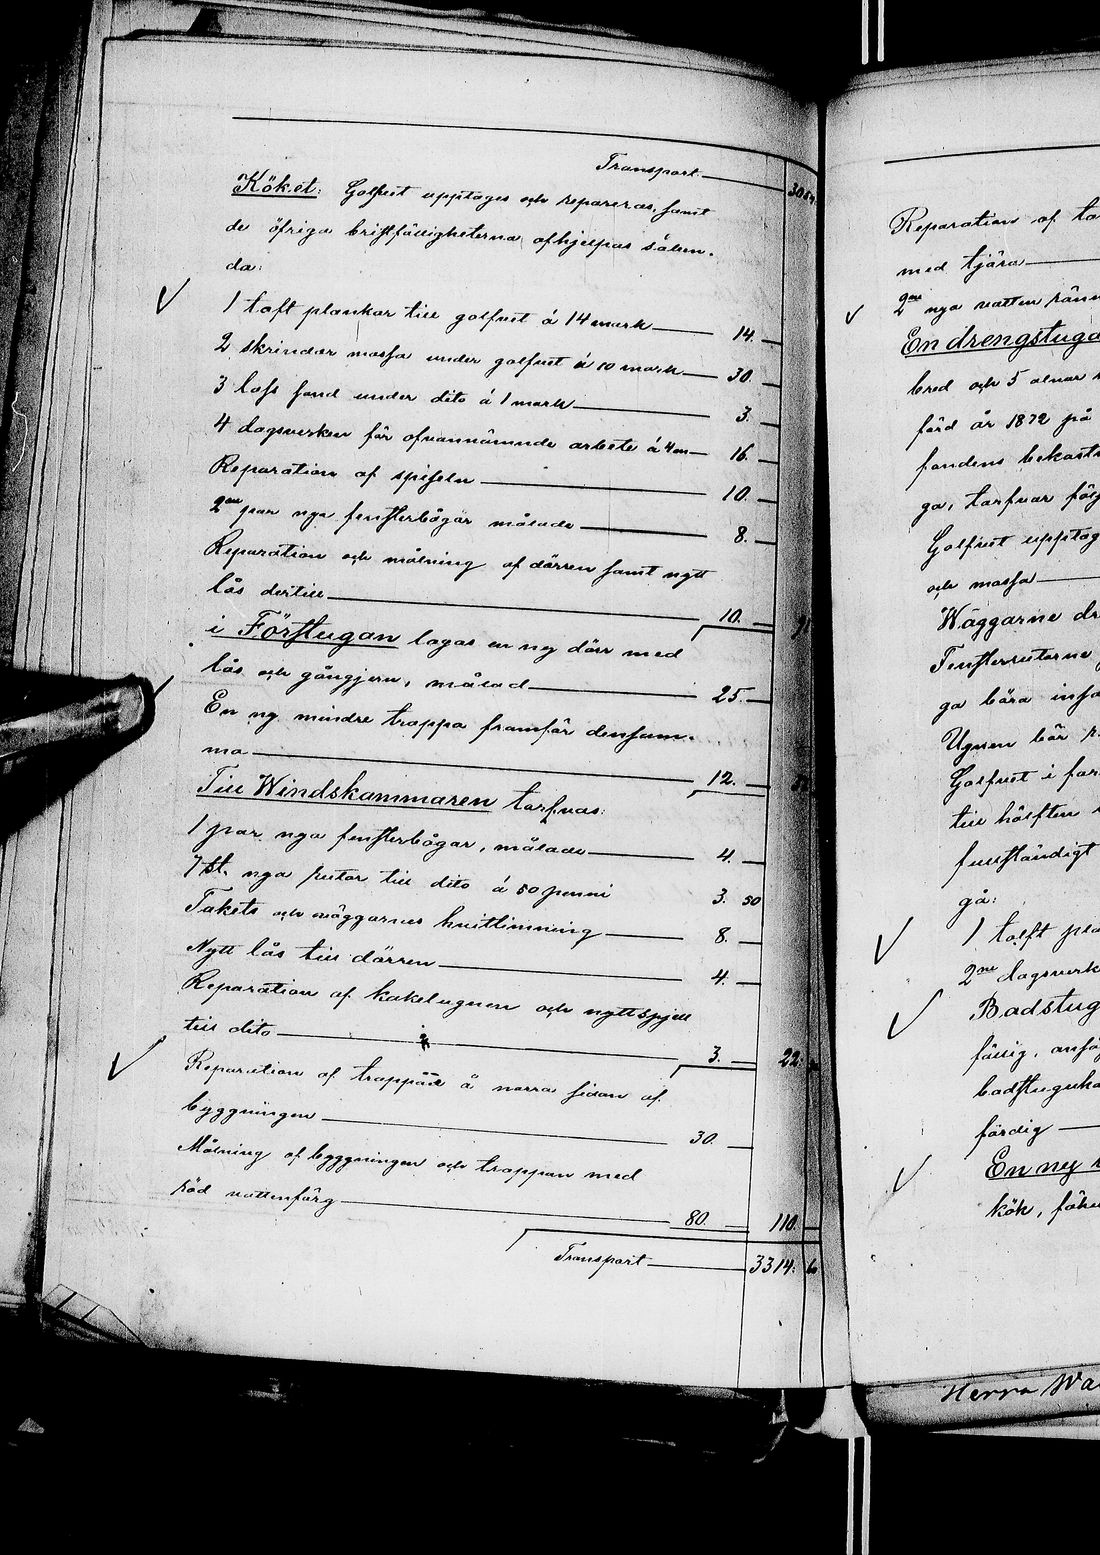 Transport 3054
Köket: Golfvet upptages och repareras, samt
de öfriga bristfälligheterna afhjelpas sålun-
da:
1 tolft plankor till golfvet á 14 mark 14. —
2 skrindor mossa under golfvet á 10 mark 30. —
3 lass sand under dito á 1 mark 3. —
4 dagsverken för ofvannämnde arbete á 4 m 16. —
Reparation af spiseln 10. —
2ne par nya fensterbågar målade 8. —
Reparation och målning af dörren samt nytt
lås dertill 10. — 91
i Förstugan lagas en ny dörr med
lås och gångjern, målad 25. —
En ny mindre trappa framför densam-
ma 12. —
Till Windskammaren tarfvas:
1 par nya fensterbågar, målade 4. —
7 st. nya rutor till dito á 50 penni 3. 50
Takets och väggarnes hvitlimning 8. —
Nytt lås till dörren 4. —
Reparation af kakelugnen och nytt spjell
till dito 3. — 22.
Reparation af trappan å norra sidan af
byggningen 30. —
Målning af byggningen och trappan med
röd vattenfärg 80. — 110. —
Transport 3314:
Reparation af
med tjära
2ne nya vatten
En drengstuga
bred och 5 alnar
förd år 1872 på
fondens
ga, tarfvar
Golfvet
och mossa
Wäggarne
Fensterrutorne
ga böra
Ugnen bör
Golfvet i
till hälften
fullständigt
gå:
1 tolft
2ne
fällig,
färdig
En ny
kök,
Herra